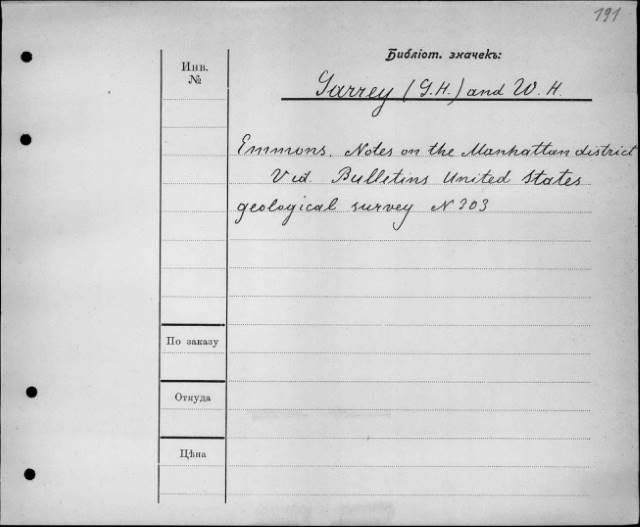 191
Библіот. значекъ:
Инв.
№
Garrey (G.H.) and W. H.
Emmons. Notes on the Manhattan district
Vid. Bulletins United States
geological survey N 303
По заказу
Откуда
Цѣна